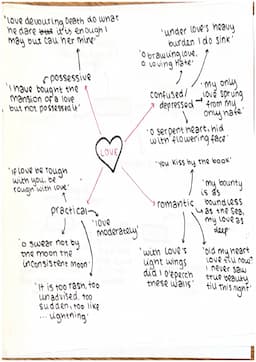 'love devouring Death do what
he dare it is enough I
may but call her mine'
possessive
'I have bought the
mansion of a love
but not possess'd it'
'under love's heavy
burden I do sink'
'O brawling love,
O loving hate'
confused/
depressed
'my only
love sprung
from my
only hate'
'O serpent heart, hid
with flowering face'
LOVE
'you kiss by the book'
'If love be rough
with you, be
rough with love'
practical
'love
moderately'
'O swear not by
the moon the
inconsistent moon'
'It is too rash, too
unadvised, too
sudden, too like
... lightning'
romantic
'my bounty
is as
boundless
as the sea,
my love as
deep'
'with love's
light wings
did I o'perch
these walls'
'Did my heart
love till now?
I never saw
true beauty
till this night'